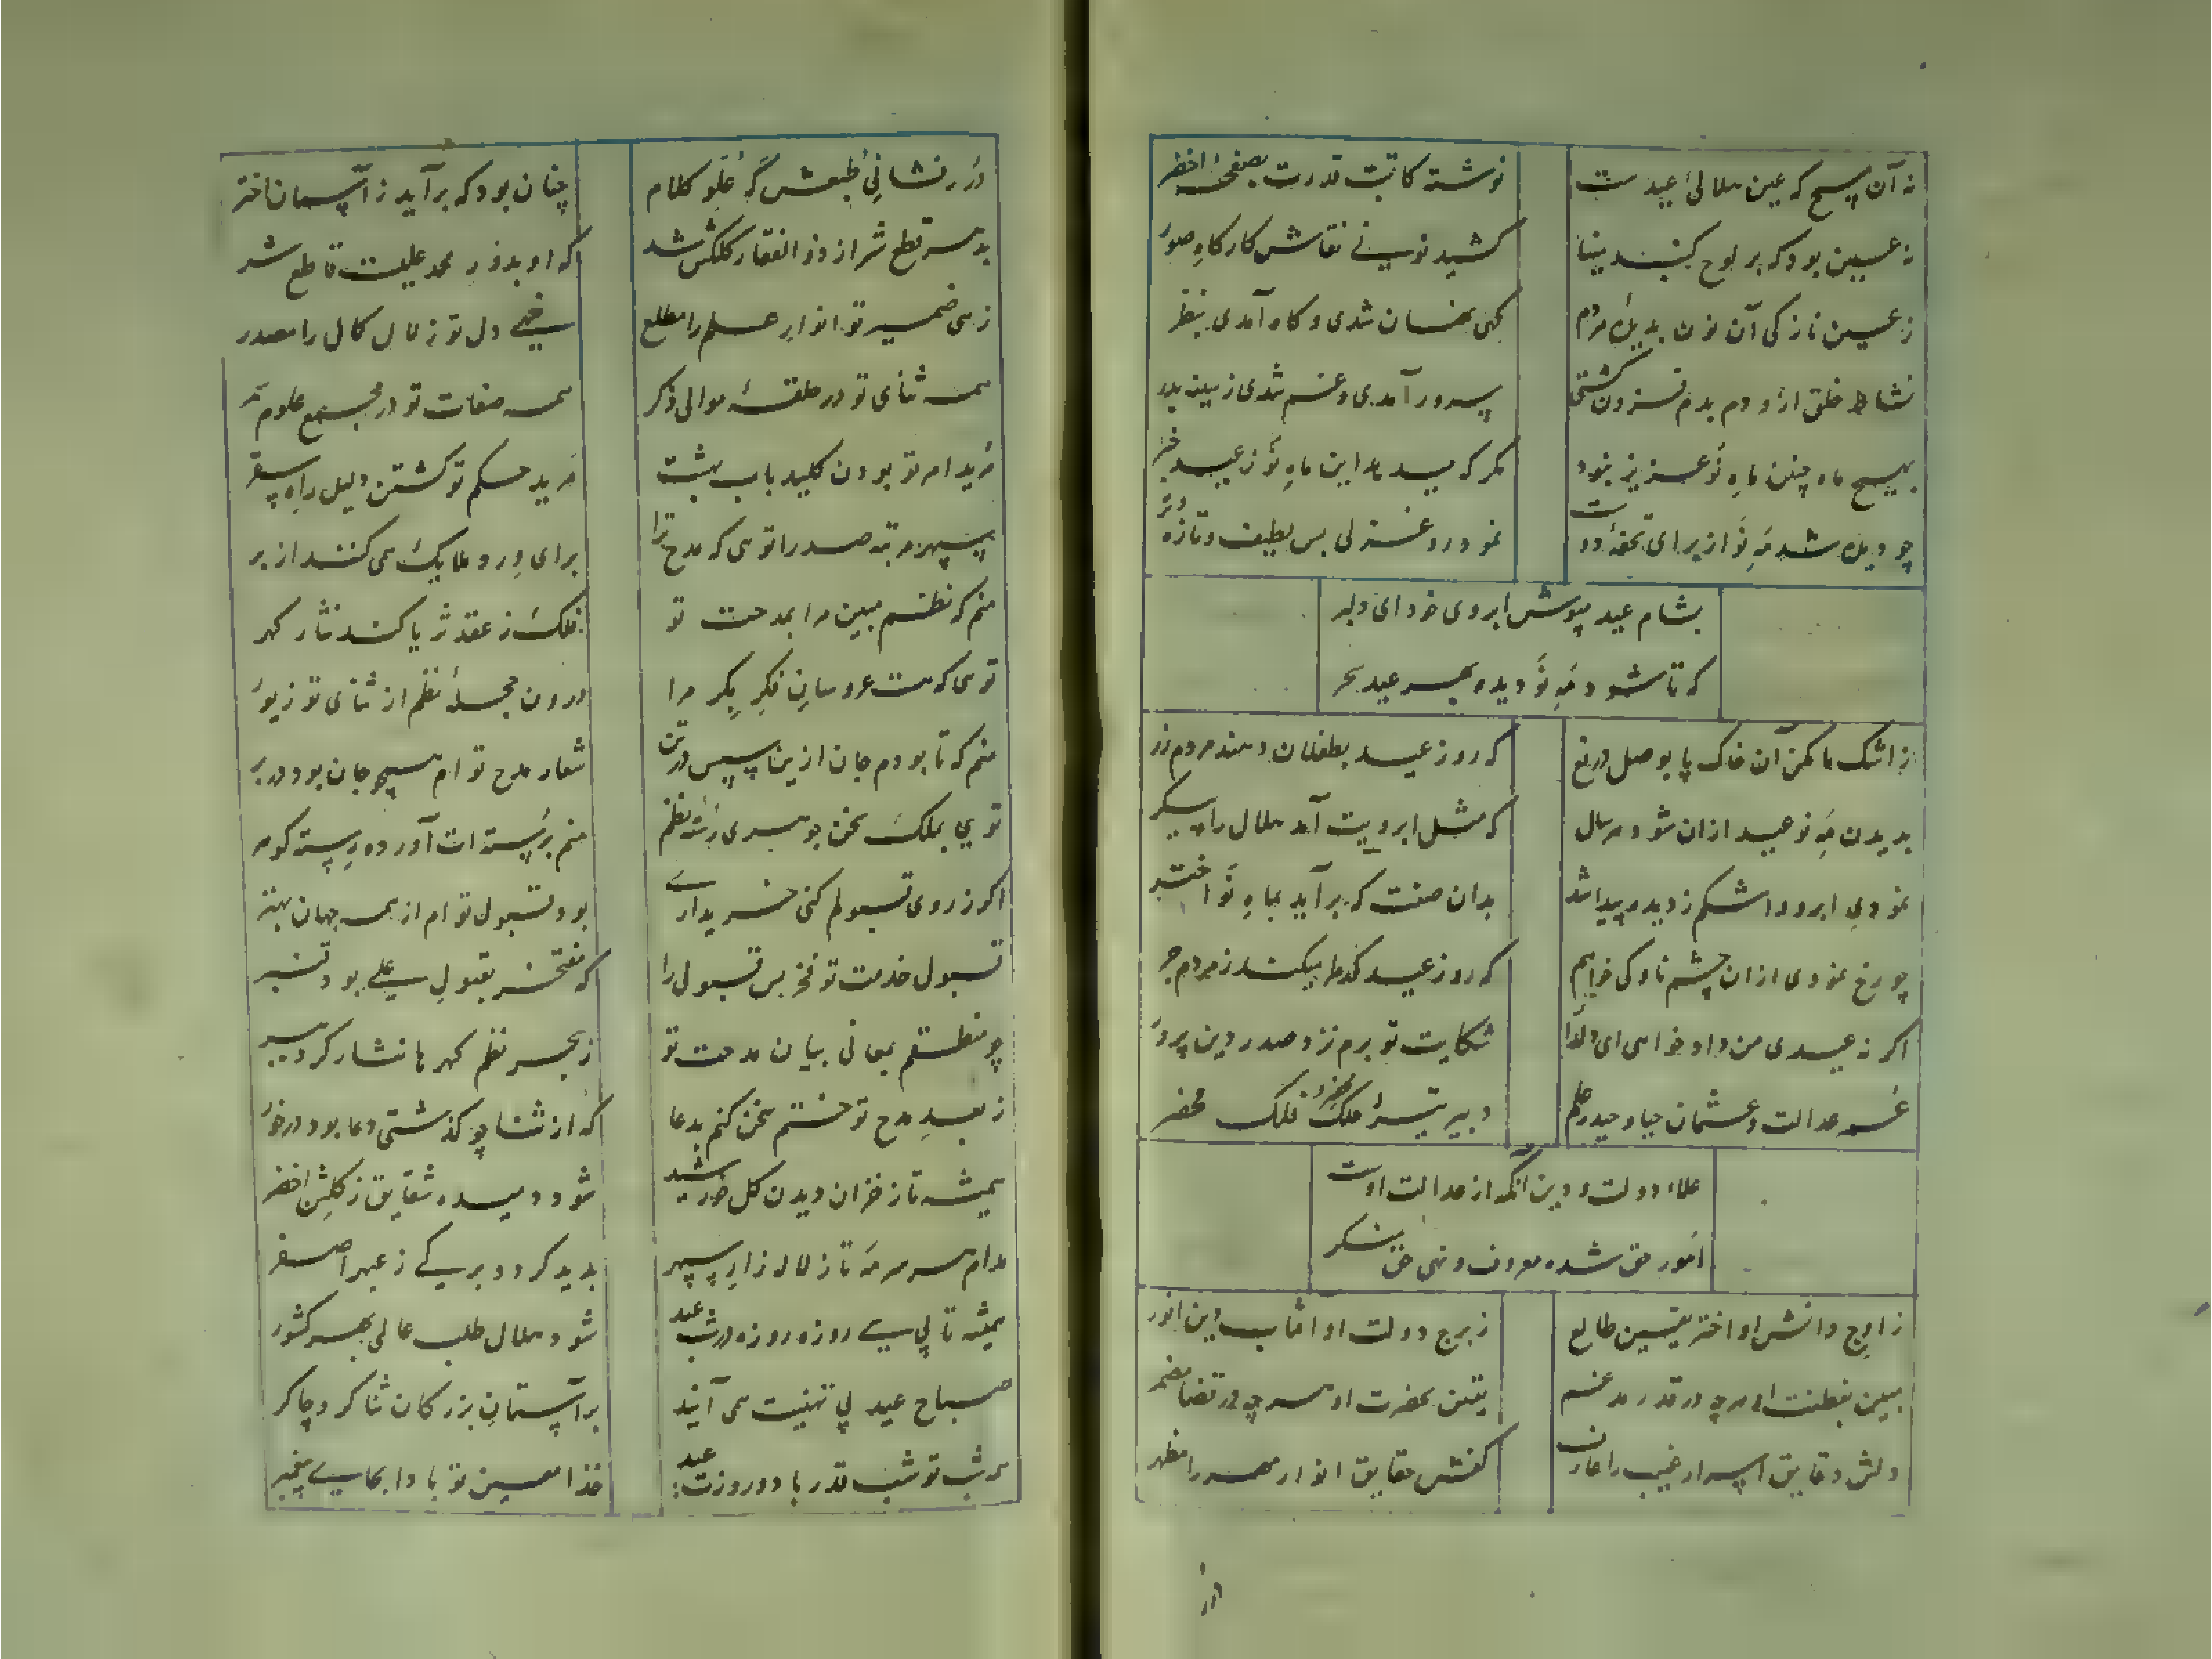 نه آن مسیح که عین هلالی عیدست
نوشته کاتب قدرت بصفحهٔ اخضر
نه عین بود که بر لوح کنبد مینا
کشید نونی نقاش کارکاه صور
ز عین نازکی آن نون بدیدهٔ مردم
کهی نهان شدی و کاه آمدی بنظر
نشاط خلق ازو دم بدم فزون کشتی
سرور آمدی و غم شدی ز سینه بدر
بهیچ ماه چنین ماه نو عزیز نبود
مکر که میدهد این ماه نو ز عید خبر
چو دیده شد مه نو از برای تحفهٔ دوست
نمود رو غزلی بس لطیف و تازه و تر
بشام عید مپوش ابروی خود ای دلبر
که تا شود مه نو دیده بهر عید سحر
ز اشک ما مکن آن خاک پا بوصل دریغ
که روز عید بطفلان دهند مردم زر
بدیدن مه نو عید ازان شود هر سال
که مثل ابرویت آمد هلال راه سپر
نمودی ابرو و اشکم ز دیده پیدا شد
بدان صفت که برآید بماه نو اختر
چو رخ نمودی ازان چشم ناوکی خواهیم
که روز عید کدا میکند ز مردم جر
اکر نه عیدی من داد خواهی ای دلدار
شکایت تو برم نزد صدر دین پرور
عمر عدالت و عثمان حیا و حیدر علم
دبیر تیر ملک فلک محضر
علاء دولت و دین آنکه از عدالت اوست
امور حق شده معروف و نهی حق منکر
ز اوج دانش او اختر یقین طالع
ز برج دولت او آفتاب دین انور
مبین بفطنت او هر چه در قدر مدغم
یقین بحضرت او هر چه در قضا مضمر
دلش دقایق اسرار غیب را عارف
کفش حقایق انوار مهر را مظهر
درر فشانی طبعش که علو کلام
چنان بود که برآید ز آسمان اختر
بدهر قطع شر از ذوالفقار کلکش شد
که او بدور محمد علیست قاطع شر
زهی ضمیر تو انوار علم را مطلع
خهی دل تو زلال کمال را مصدر
همه ثنای تو در حلقهٔ موالی ذکر
همه صفات تو در مجمع علوم سمر
مرید امر تو بودن کلید باب بهشت
مرید حکم تو کشتن دلیل راه سقر
سپهر مرتبه صدرا توی که مدح ترا
برای ورد ملایک همی کنند از بر
منم که نظم مبین مرا بمدحت تو
فلک ز عقد ثریا کند نثار کهر
توی که هست عروسان فکر بکر مرا
درون حجلهٔ نظم از ثنای تو زیور
منم که تا بودم جان ازین سپس در تن
شعار مدح تو ام همچو جان بود در بر
توی بملک سخن جوهری رشتهٔ نظم
منم برشته ات آورده رسته کوهر
اکر ز روی قبولم کنی خریداری
بود قبول تو ام از همه جهان بهتر
قبول خدمت تو فخر بس قبولی را
که مفتخر بقبول علی بود قنبر
چو منطقم بمعانی بیان مدحت تو
ز بحر نظم کهرها نثار کرد بسر
ز بعد مدح تو ختم سخن کنم بدعا
که از ثنا چو کذشتی دعا بود درخور
همیشه تا ز خزان دیدن کل خورشید
شود دمیده شقایق ز کلشن اخضر
مدام سر مه تا ز لاله زار سپهر
بدید کردد برکی ز عبهر اصفر
همیشه تا پی سی روزه روزه در شب عید
شود هلال طلب عالی بهر کشور
صباح عید پی تهنیت همی آیند
بر آستان بزرکان ثناکر و چاکر
هر شب تو شب قدر باد و روزت عید
خدا معین تو بادا بحامی پیغمبر